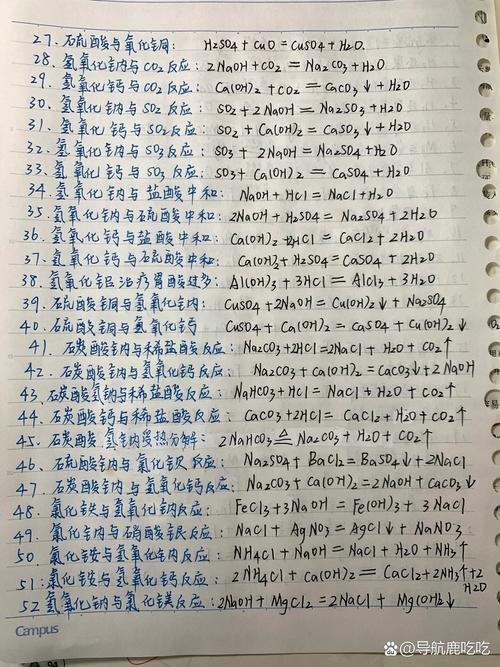 27. 石硫酸与氧化铜: H2SO4 + CuO = CuSO4 + H2O.
28. 氢氧化钠与CO2反应: 2NaOH + CO2 = Na2CO3 + H2O
29. 氢氧化钙与CO2反应: Ca(OH)2 + CO2 = CaCO3↓ + H2O
30. 氢氧化钠与SO2反应: SO2 + 2NaOH = Na2SO3 + H2O
31. 氢氧化钙与SO2反应: SO2 + Ca(OH)2 = CaSO3↓ + H2O
32. 氢氧化钠与SO3反应: SO3 + 2NaOH = Na2SO4 + H2O
33. 氢氧化钙与SO3反应: SO3 + Ca(OH)2 = CaSO4 + H2O
34. 氢氧化钠与盐酸中和: NaOH + HCl = NaCl + H2O
35. 氢氧化钠与石硫酸中和: 2NaOH + H2SO4 = Na2SO4 + 2H2O
36. 氢氧化钙与盐酸中和: Ca(OH)2 + 2HCl = CaCl2 + 2H2O
37. 氢氧化钙与石硫酸中和: Ca(OH)2 + H2SO4 = CaSO4 + 2H2O
38. 氢氧化铝治疗胃酸过多: Al(OH)3 + 3HCl = AlCl3 + 3H2O
39. 石硫酸铜与氢氧化钠: CuSO4 + 2NaOH = Cu(OH)2↓ + Na2SO4
40. 石硫酸铜与氢氧化钙 CuSO4 + Ca(OH)2 = CaSO4 + Cu(OH)2↓
41. 石炭酸钠与稀盐酸反应: Na2CO3 + 2HCl = 2NaCl + H2O + CO2↑
42. 石炭酸钠与氢氧化钙反应: Na2CO3 + Ca(OH)2 = CaCO3↓ + 2NaOH
43. 石炭酸氢钠与稀盐酸反应: NaHCO3 + HCl = NaCl + H2O + CO2↑
44. 石炭酸钙与稀盐酸反应: CaCO3 + 2HCl = CaCl2 + H2O + CO2↑
45. 石炭酸氢钠受热分解: 2NaHCO3 ≜ Na2CO3 + H2O + CO2↑
46. 石硫酸钠与氯化钡反应: Na2SO4 + BaCl2 = BaSO4↓ + 2NaCl
47. 石炭酸钠与氢氧化钙反应: Na2CO3 + Ca(OH)2 = 2NaOH + CaCO3↓
48. 氯化铁与氢氧化钠反应: FeCl3 + 3NaOH = Fe(OH)3↓ + 3NaCl
49. 氯化钠与硝酸银反应: NaCl + AgNO3 = AgCl↓ + NaNO3
50. 氯化铵与氢氧化钠反应: NH4Cl + NaOH = NaCl + H2O + NH3↑
51: 氯化铵与氢氧化钙反应: 2NH4Cl + Ca(OH)2 = CaCl2 + 2NH3↑ + 2
H2O
52 氢氧化钠与氯化镁反应: 2NaOH + MgCl2 = 2NaCl + Mg(OH)2↓
Campus
@导航鹿吃吃